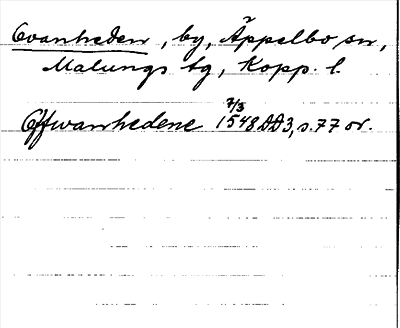 Ovanheden, by, Äppelbo sn,
Malungs tg, Kopp. l.
Offwanhedene 7/3 1548 DD3, s. 77 or.